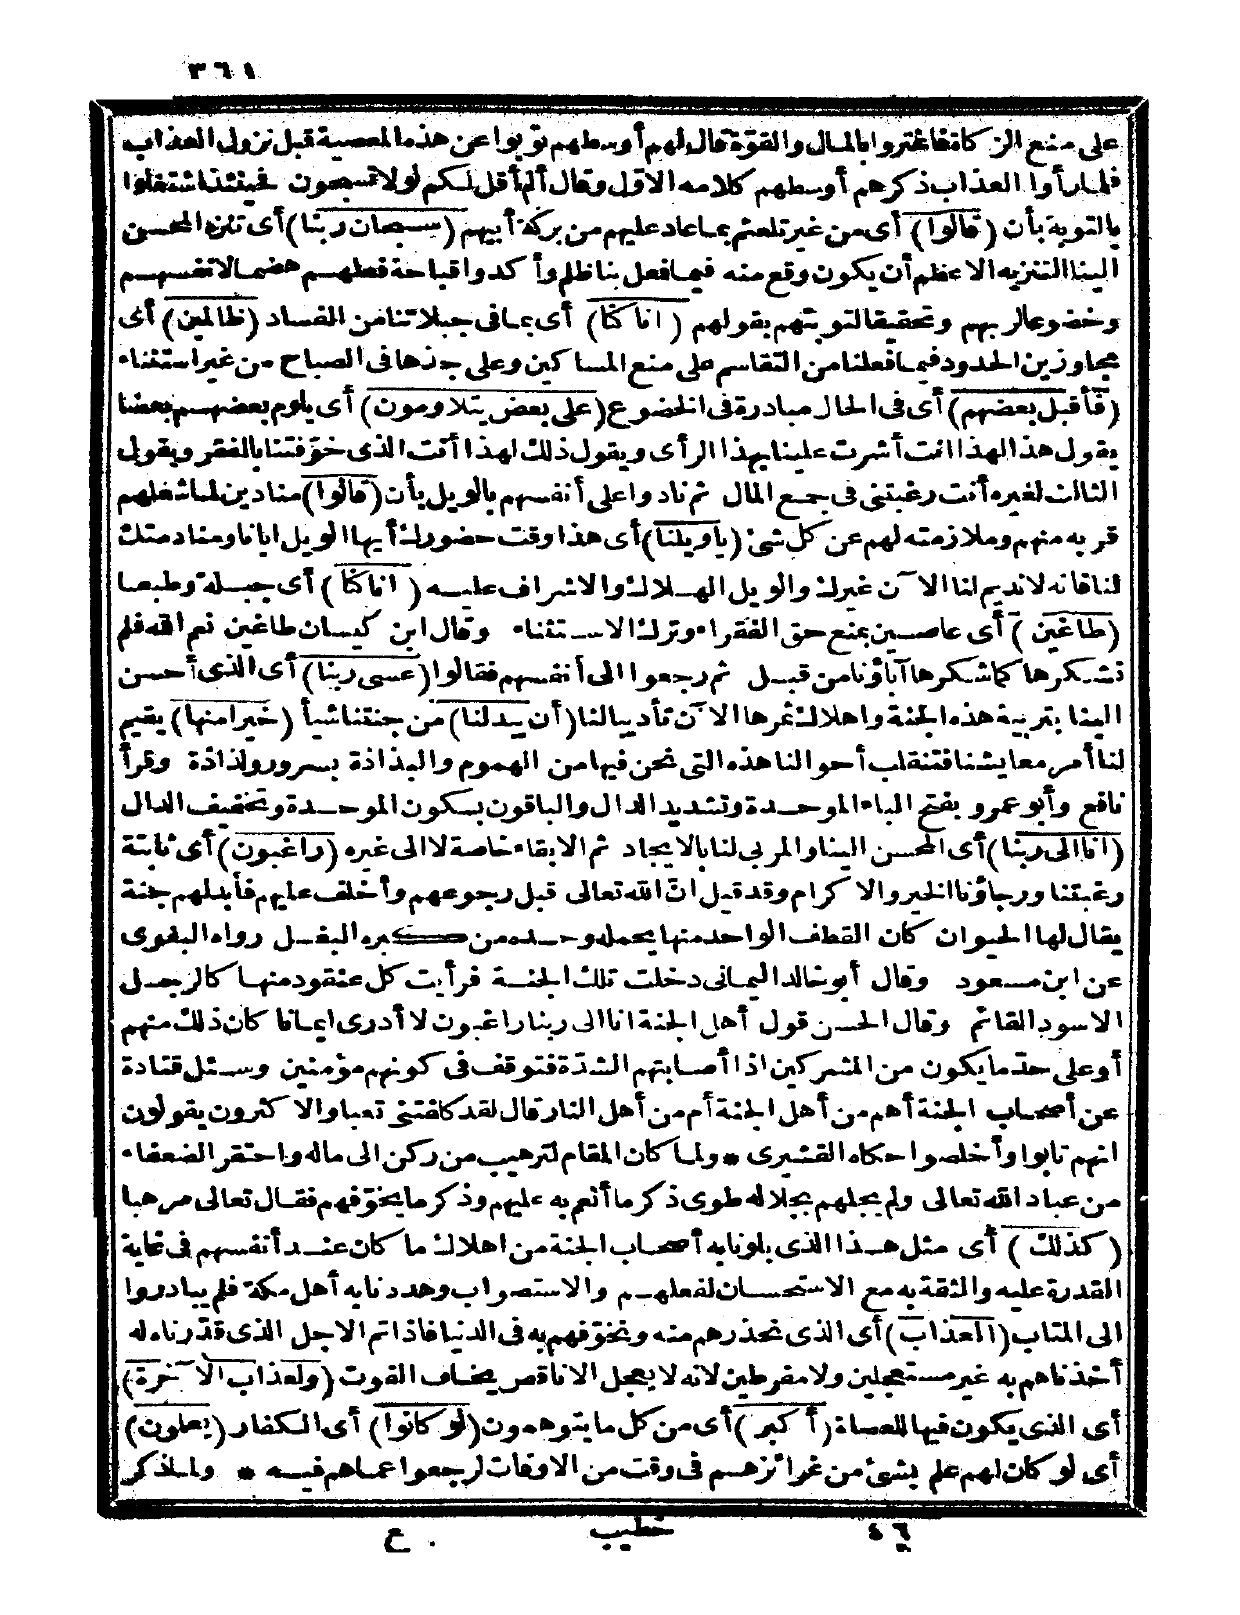 ٣٦١
على منع الزكاة فاغتروا بالمال والقوّة قال لهم أوسطهم توبوا عن هذه المعصية قبل نزول العذاب
فلما رأوا العذاب ذكرهم أوسطهم كلامه الاوّل وقال ألم أقل لكم لولا تسبحون فحينئذ اشتغلوا
بالتوبة بأن (قالوا) أى من غير تلعثم بما عاد عليهم من بركة أبيهم (سبحان ربنا) أى تنزه المحسن
الينا التنزيه الاعظم أن يكون وقع منه فيما فعل بنا ظلم وأكدوا قباحة فعلهم هضما لانفسهم
وخضوعا لربهم وتحقيقا لتوبتهم بقولهم (انا كنا) أى بما فى جبلاتنا من الفساد (ظالمين) أى
مجاوزين الحدود فيما فعلنا من التقاسم على منع المساكين وعلى جذها فى الصباح من غير استثناء
(فأقبل بعضهم) أى فى الحال مبادرة فى الخضوع (على بعض يتلاومون) أى يلوم بعضهم بعضا
يقول هذا لهذا انت أشرت علينا بهذا الرأى ويقول ذلك لهذا أنت الذى خوّفتنا بالفقر ويقول
الثالث لغيره أنت رغبتنى فى جمع المال ثم نادوا على أنفسهم بالويل بأن (قالوا) منادين لما شغلهم
قربه منهم وملازمته لهم عن كل شئ (ياويلنا) أى هذا وقت حضورك أيها الويل ايانا ومنادمتك
لنا فانه لا نديم لنا الآن غيرك والويل الهلاك والاشراف عليه (انا كنا) أى جبلة وطبعا
(طاغين) أى عاصين بمنع حق الفقراء وترك الاستثناء وقال ابن كيسان طاغين نعم الله فلم
نشكرها كما شكرها آباؤنا من قبل ثم رجعوا الى أنفسهم فقالوا (عسى ربنا) أى الذى أحسن
الينا بتربية هذه الجنة واهلاك ثمرها الآن تأديبا لنا (أن يبدلنا) من جنتنا شيأ (خيرا منها) يقيم
لنا أمر معايشنا فتنقلب أحوالنا هذه التى نحن فيها من الهموم والبذاذة بسرور ولذاذة وقرأ
نافع وأبو عمرو بفتح الباء الموحدة وتشديد الدال والباقون بسكون الموحدة وتخفيف الدال
(انا الى ربنا) أى المحسن الينا والمربى لنا بالايجاد ثم الابقاء خاصة لا الى غيره (راغبون) أى ثابتة
رغبتنا ورجاؤنا الخير والاكرام وقد قيل انّ الله تعالى قبل رجوعهم وأخلف عليهم فأبدلهم جنة
يقال لها الحيوان كان القطف الواحد منها يحمله وحده من كبره البغل رواه البغوى
عن ابن مسعود وقال أبو خالد اليمانى دخلت تلك الجنة فرأيت كل عنقود منها كالرجل
الاسود القائم وقال الحسن قول أهل الجنة انا الى ربنا راغبون لا أدرى ايمانا كان ذلك منهم
أو على حدّ ما يكون من المشركين اذا أصابتهم الشدّة فتوقف فى كونهم مؤمنين وسئل قتادة
عن أصحاب الجنة أهم من أهل الجنة أم من أهل النار قال لقد كلفتنى تعبا والاكثرون يقولون
انهم تابوا وأخلصوا حكاه القشيرى * ولما كان المقام لترهيب من ركن الى ماله واحتقر الضعفاء
من عباد الله تعالى ولم يجلهم بجلاله طوى ذكر ما أنعم به عليهم وذكر ما يخوّفهم فقال تعالى مرهبا
(كذلك) أى مثل هذا الذى بلونا به أصحاب الجنة من اهلاك ما كان عند أنفسهم فى غاية
القدرة عليه والثقة به مع الاستحسان لفعلهم والاستصواب وهددنا به أهل مكة فلم يبادروا
الى المتاب (العذاب) أى الذى نحذرهم منه ونخوّفهم به فى الدنيا فاذا تم الاجل الذى قدّرناه له
أخذناهم به غير مستعجلين ولا مفرطين لانه لا يعجل الا ناقص يخاف الفوت (ولعذاب الآخرة)
أى الذى يكون فيها للعصاة (أكبر) أى من كل ما يتوهمون (لو كانوا) أى الكفار (يعلمون)
أى لو كان لهم علم بشئ من غرائزهم فى وقت من الاوقات لرجعوا عما هم فيه * ولما ذكر
٤٦ خطيب ع